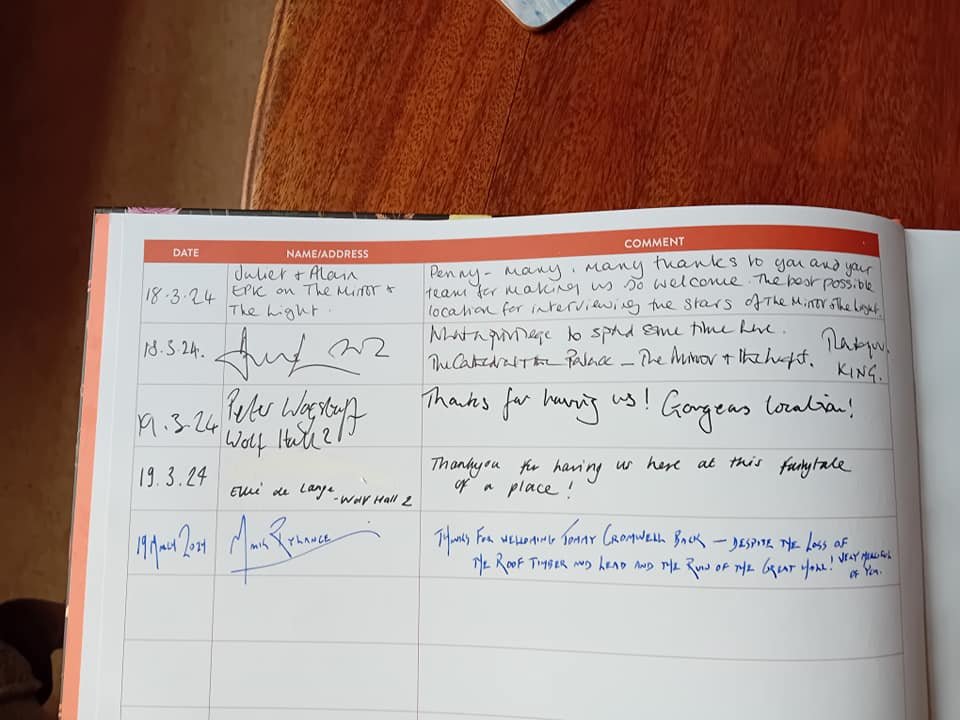 DATE NAME/ADDRESS COMMENT
18.3.24
Juliet & Alain
EPK on The Mirror &
The Light.
Penny - many, many thanks to you and your
team for making us so welcome. The best possible
location for interviewing the stars of The Mirror & The Light.
18.3.24.
What a privilege to spend some time here.
The Cathedral & The Palace - The Mirror & the Light.
KING.
19.3.24
Peter Wagstaff
Wolf Hall 2
Thanks for having us! Gorgeous location!
19.3.24
Elli de Lange - Wolf Hall 2
Thankyou for having us here at this fairytale
of a place!
19 March 2024
Mark Rylance
Thanks for welcoming Tommy Cromwell Back — despite the loss of
the Roof Timber and Lead and the Ruin of the Great Hall! Very merciful
of you.